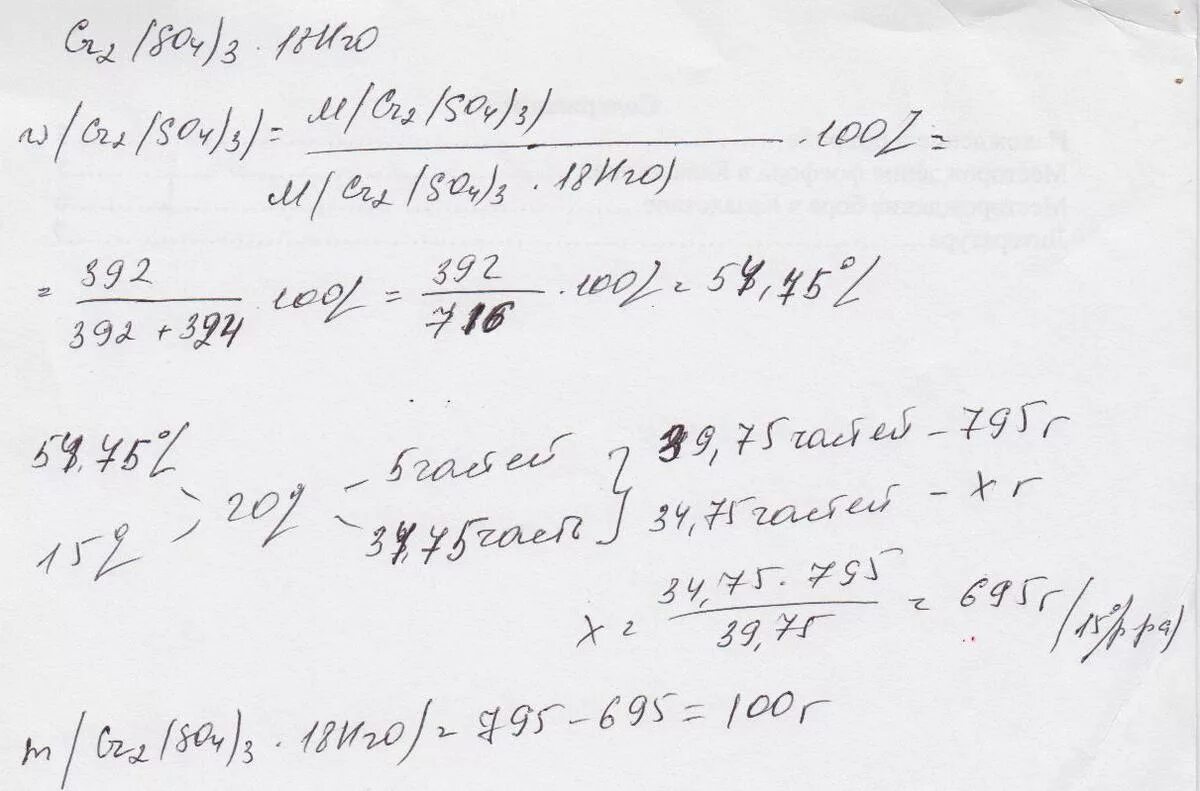 Cr₂(SO₄)₃ · 18H₂O
w(Cr₂(SO₄)₃) = M(Cr₂(SO₄)₃) / M(Cr₂(SO₄)₃ · 18H₂O) · 100% =
= 392 / 392 + 324 · 100% = 392 / 716 · 100% = 54,75%
54,75%
15%
20%
5 частей
34,75 часть
39,75 частей – 795 г
34,75 частей – x г
x = 34,75 · 795 / 39,75 = 695 г (15% р-ра)
m(Cr₂(SO₄)₃ · 18H₂O) = 795 – 695 = 100 г